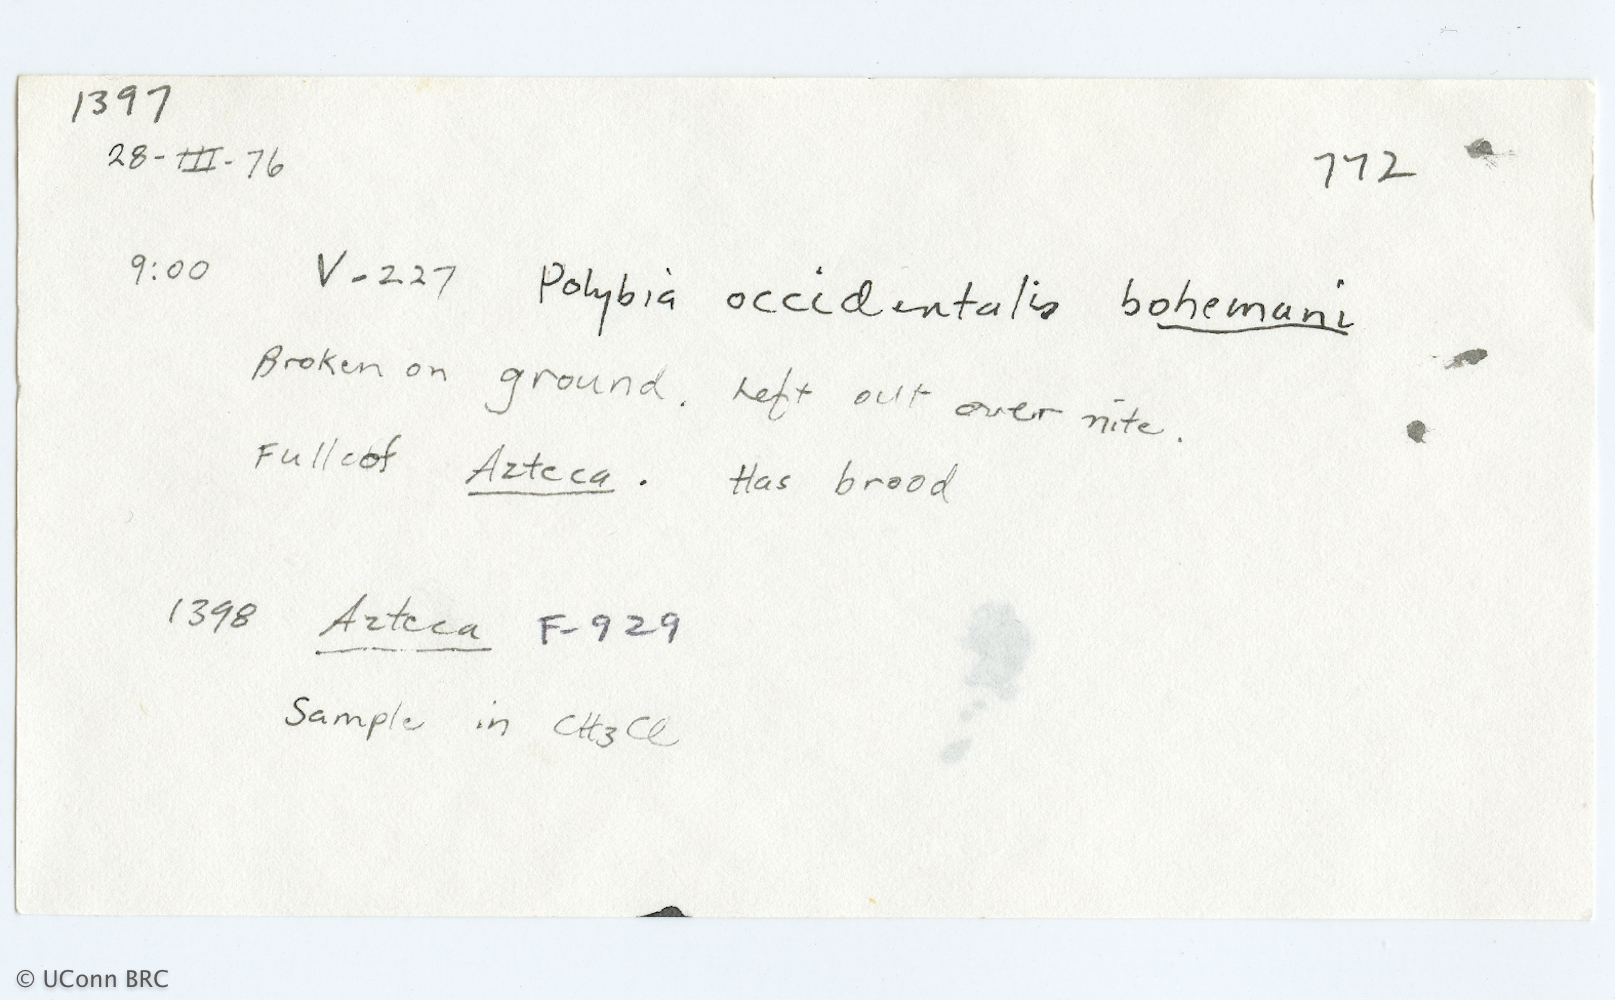 1397
28-III-76
772
9:00 V-227 Polybia occidentalis bohemani
Broken on ground. Left out over nite.
Full of Azteca. Has brood
1398 Azteca F-929
Sample in CH3Cl
© UConn BRC